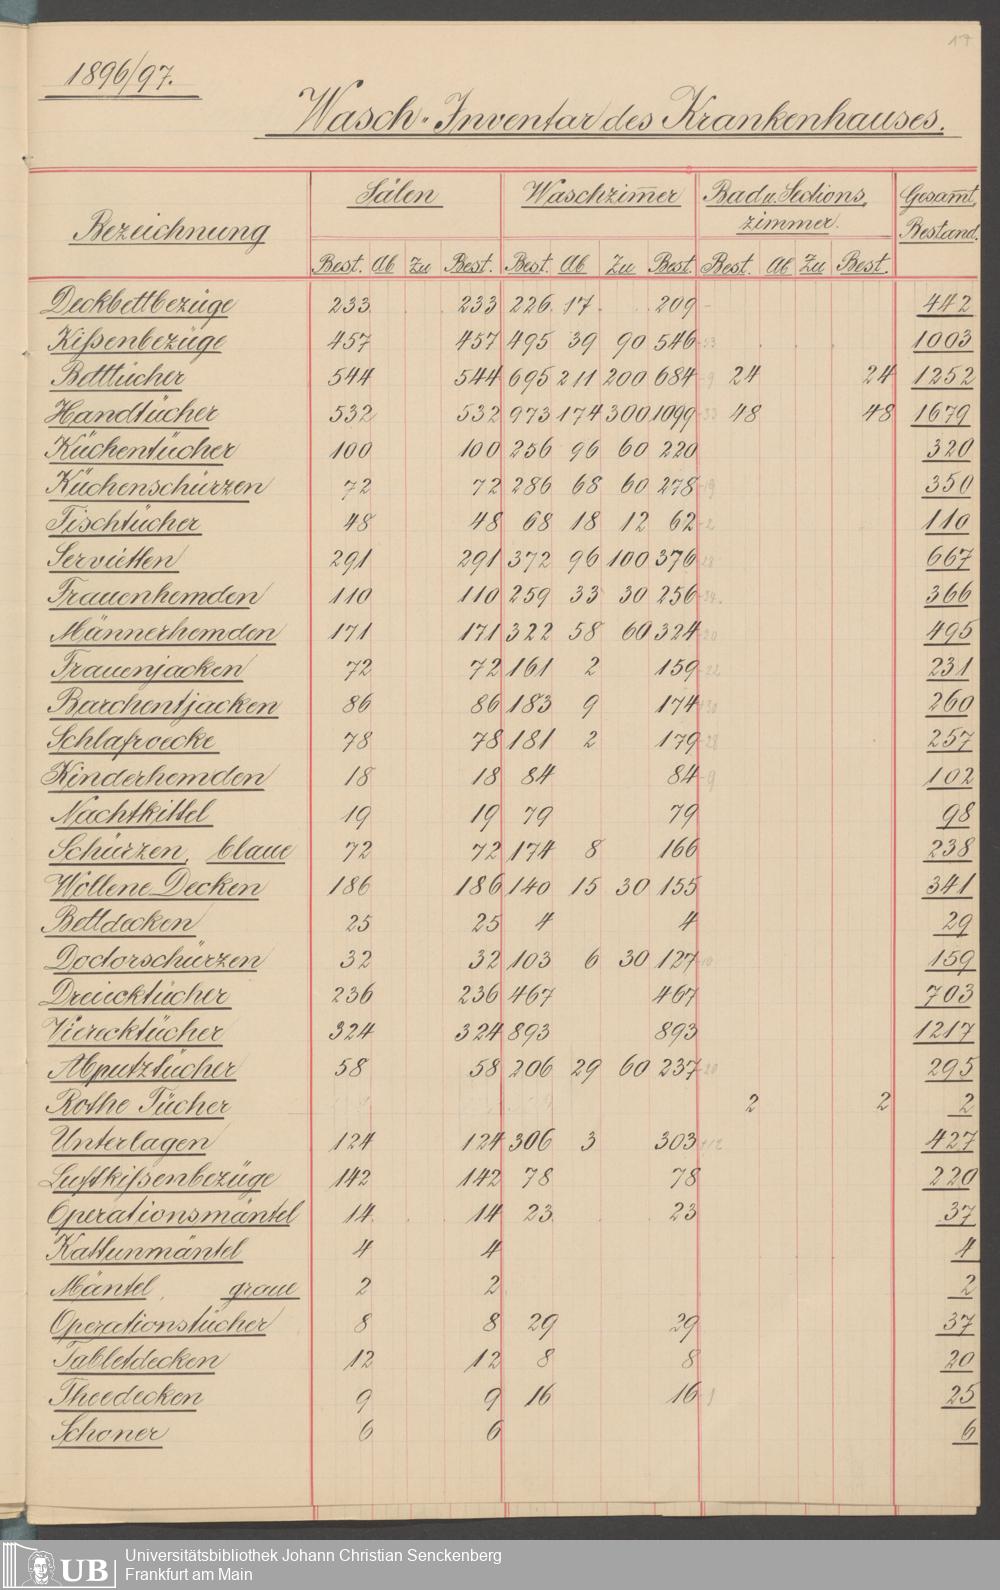 17
1896/97.
Wasch-Inventar des Krankenhauses.
Bezeichnung Sälen Waschzimmer Bad u. Sections, zimmer. Gesammt, Bestand.
Best. Ab Zu Best. Best. Ab Zu Best. Best. Ab Zu Best.
Deckbettbezüge 233 233 226 17 209 442
Kißenbezüge 457 457 495 39 90 546 1003
Betttücher 544 544 695 211 200 684 24 24 1252
Handtücher 532 532 973 174 300 1099 48 48 1679
Küchentücher 100 100 256 96 60 220 320
Küchenschürzen 72 72 286 68 60 278 350
Tischtücher 48 48 68 18 12 62 110
Servietten 291 291 372 96 100 376 667
Frauenhemden 110 110 259 33 30 256 366
Männerhemden 171 171 322 58 60 324 495
Frauenjacken 72 72 161 2 159 231
Barchentjacken 86 86 183 9 174 260
Schlafroecke 78 78 181 2 179 257
Kinderhemden 18 18 84 84 102
Nachtkittel 19 19 79 79 98
Schürzen, blaue 72 72 174 8 166 238
Wollene Decken 186 186 140 15 30 155 341
Bettdecken 25 25 4 4 29
Doctorschürzen 32 32 103 6 30 127 159
Dreiecktücher 236 236 467 467 703
Vierecktücher 324 324 893 893 1217
Abputztücher 58 58 206 29 60 237 295
Rothe Tücher 2 2 2
Unterlagen 124 124 306 3 303 427
Luftkißenbezüge 142 142 78 78 220
Operationsmäntel 14 14 23 23 37
Kattunmäntel 4 4 4
Mäntel, graue 2 2 2
Operationstücher 8 8 29 29 37
Tabletdecken 12 12 8 8 20
Theedecken 9 9 16 16 25
Schoner 6 6 6
UB
Universitätsbibliothek Johann Christian Senckenberg
Frankfurt am Main